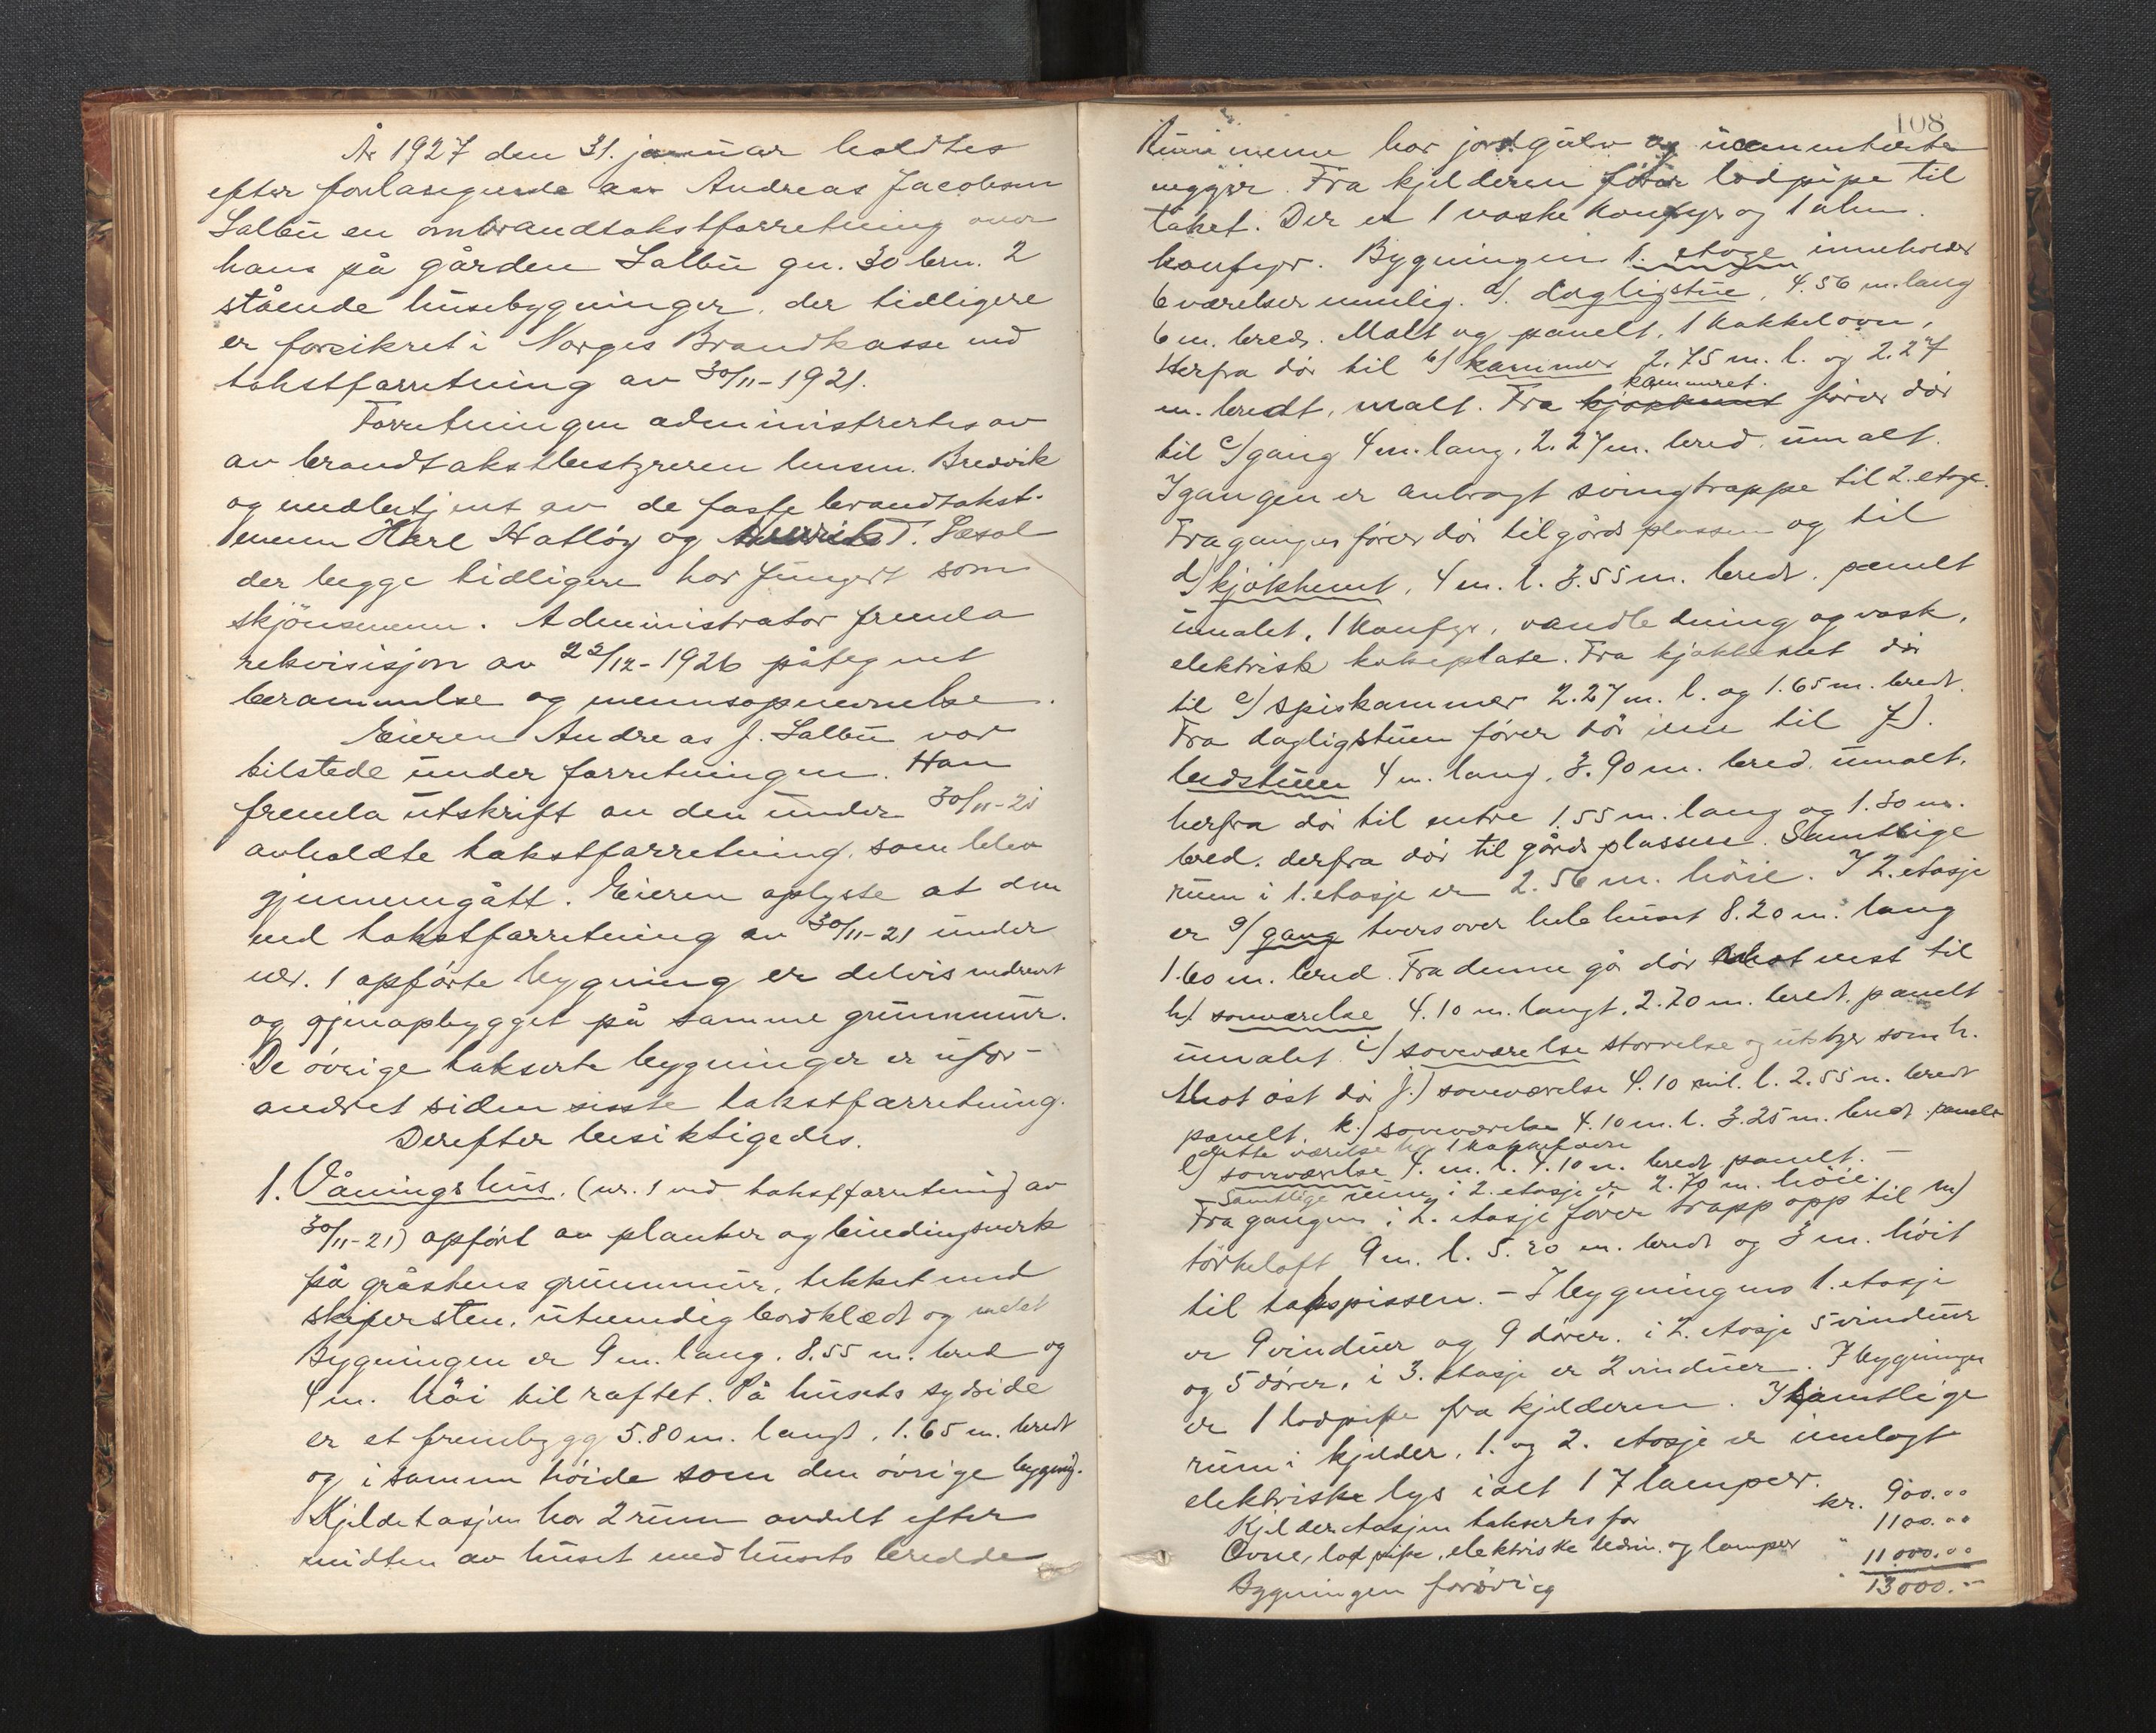 År 1927 den 31. januar holdtes
efter forlangende av Andreas Jacobsen
Salbu en ombrandtakstforretning over
hans på gården Salbu gn. 30 brn. 2
stående husebygninger, der tidligere
er forsikret i Norges Brandkasse ved
takstforretning av 30/11-1921.
Forretningen administrertes av
av brandtakstbestyreren lensm. Bredvik
og medbetjent av de faste brandtakst-
menn Karl Hatlöy og T.
der begge tidligere har fungert som
skjönsmenn. Administrator fremla
rekvisisjon av 22/12-1926 påtegnet
berammelse og mennsopnevnelse.
Eieren Andreas J. Salbu var
tilstede under forretningen. Han
fremla utskrift av den under 30/11-21
avholdte takstforretning, som blev
gjennemgått. Eieren oplyste at den
ved takstforretning av 30/11-21 under
nr. 1 opförte bygning er delvis nedrevet
og gjenopbygget på samme grunnmur.
De övrige takserte bygninger er ufor-
andret siden sisste takstforretning.
Derefter besiktigedes.
1. Våningshus. (nr. 1 ved takstforretning av
30/11-21) opfört av planker og bindingsverk
på gråstens grunnmur, tekket med
skifersten, utvendig bordklædt og malet
Bygningen er 9 m. lang. 8.55 m. bred og
4 m. höi til raftet. På husets sydside
er et frembygg 5.80 m. langt, 1.65 m. bredt
og i samme höide som den övrige bygning.
Kjeldetasjen har 2 rum avdelt efter
midten av huset med husets bredde
108
Rummene har jordgulv og ucementerte
vegger. Fra kjelderen förer lodpipe til
taket. Der er 1 vaske konfyr og 1 alm.
konfyr. Bygningens 1. etage inneholder
6 værelser nemlig. a). dagligstue, 4.56 m. lang
6 m. bred. Malt og panelt, 1 kakkelovn,
Herfra dör til b) kammer 2.75 m. l. og 2.27
m. bredt, malt. Fra kjökkenet kammeret. förer dör
til c) gang 4 m. lang, 2.27 m. bred umalt.
I gangen er anbragt svingtrappe til 2. etage.
Fra gangen förer dör til gårdsplassen og til
d) kjökkenet, 4 m. l. 3.55 m. bredt. panelt
umalet, 1 konfyr, vandledning og vask,
elektrisk kokeplate. Fra kjökkenet dör
til e) spiskammer 2.27 m. l. og 1.65 m. bredt.
Fra dagligstuen förer dör inn til f).
bedstuen 4 m. lang, 3.90 m. bred, umalt,
herfra dör til entre 1.55 m. lang og 1.30 m.
bred. derfra dör til gårdsplassen. Samtlige
rum i 1. etasje er 2.56 m. höie. I 2. etasje
er g) gang tversover hele huset 8.20 m. lang
1.60 m. bred. Fra denne går dör mot vest til
h) soveværelse 4.10 m. langt, 2.70 m. bredt. panelt
umalet. i) soveværelse störrelse og utstyr som h.
Mot öst dör j.) soveværelse 4.10 m. l. 2.55 m. bredt
panelt. k.) soveværelse 4.10 m. l. 3.25 m. bredt. panelt
dette værelse har 1 kakkelovn
l) soveværelse 4. m. l. 4.10 m. bredt panelt. —
Samtlige rum i 2. etasje er 2.70 m. höie.
Fra gangen i 2. etasje förer trapp opp til m)
törkeloft 9 m. l. 5.20 m. bredt og 3 m. höit
til takspissen. — I bygningens 1. etasje
er 9 vinduer og 9 dörer. i 2. etasje 5 vinduer
og 5 dörer, i 3. etasje er 2 vinduer. I bygningen
er 1 lodpipe fra kjelderen. I samtlige
rum i kjelder, 1. og 2. etasje er innlagt
elektriske lys ialt 17 lamper.
Kjelderetasjen takseres for kr. 900.00
Ovne, lodpipe, elektriske ledn. og lamper " 1100.00
Bygningen forövrig " 11000.00
13000.-